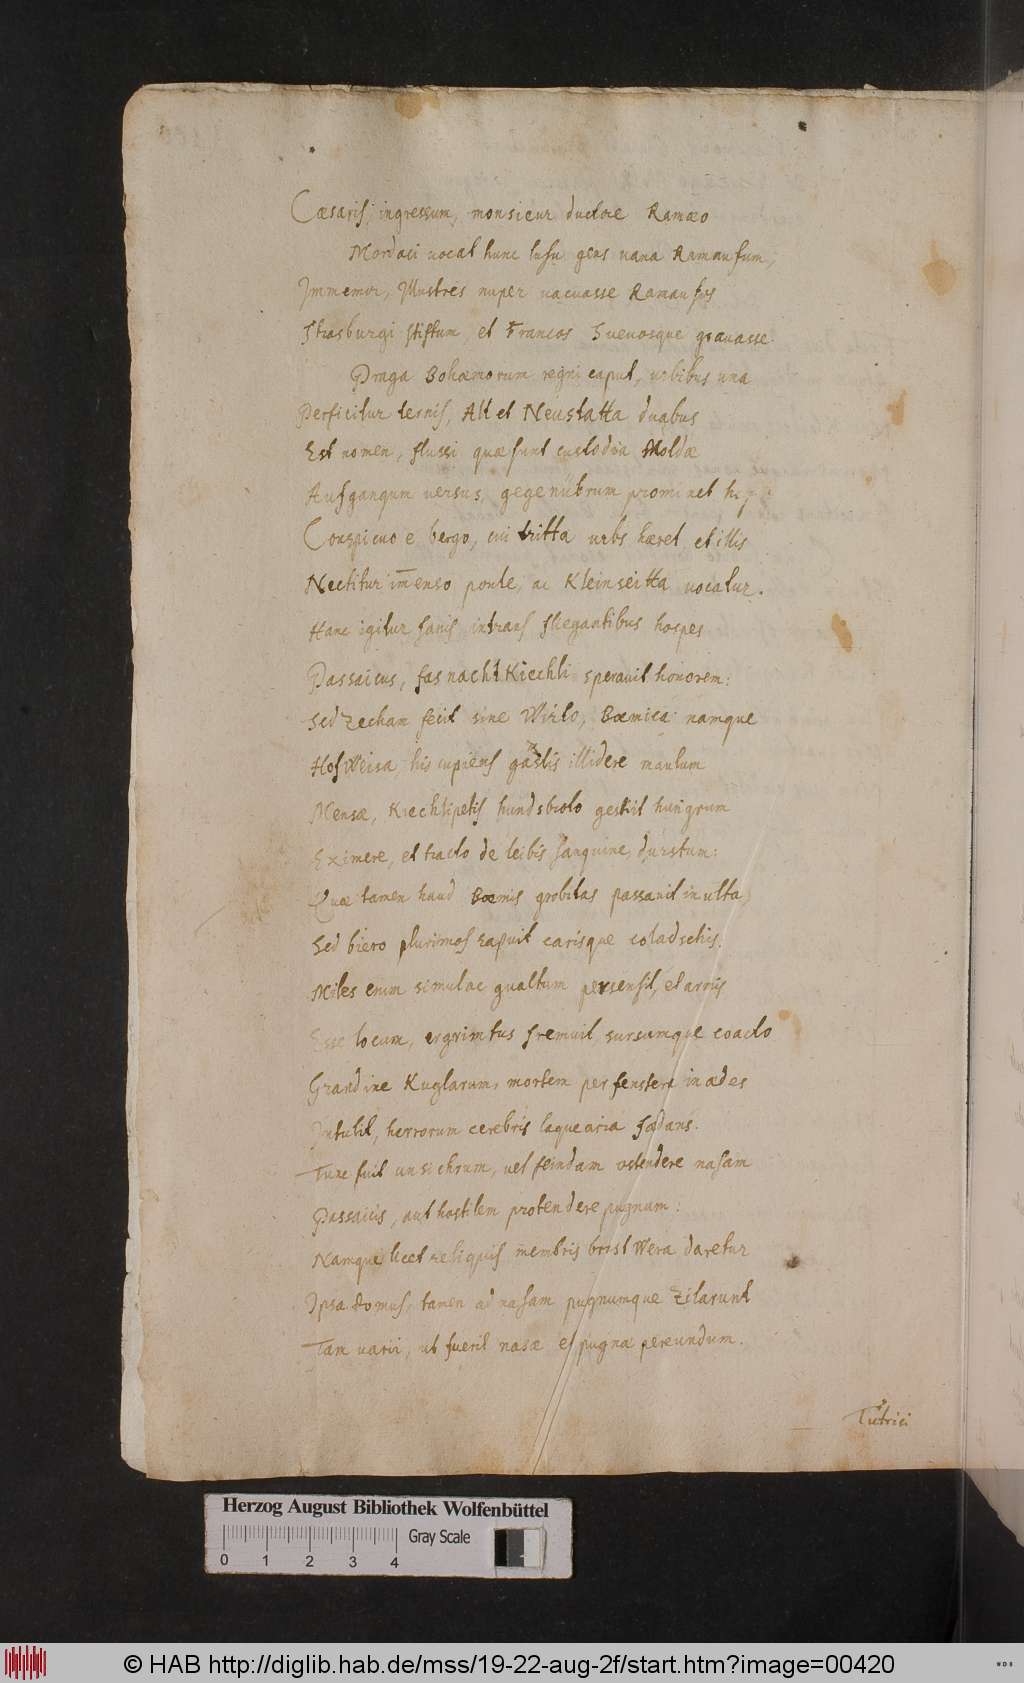 Cæsaris ingressum, monsieur ductore Ramæo
Mordaci vocat hunc lusu gens vana Ramaufum,
Immemor, Illustres nuper vacuasse Ramausos
Strasburgi stiftum, et Francos Suevosque gravasse.
Praga Bohæmorum regni caput, urbibus una
Perficitur ternis, Alt et Neustatta duabus
Est nomen, flussi quæ sunt custodia Moldæ
Aufgangum versus, gegenübrum prominet
Conspicuo e bergo, cui tritta urbs hæret et illis
Nectitur im̄enso ponte, ac Kleinseitta vocatur.
Hanc igitur fanis intrans flegantibus hospes
Passaicus, fasnacht Kiechli speravit honorem:
Sed zecham fecit sine Wirto, Bœmica namque
Hofweisa his cupiens gastis illidere maulum
Mensæ, Kiechlipetis hundsbroto gestiit hungrum
Eximere, et tracto de leibis sanguine, durstum:
Quæ tamen haud Bœmis grobitas passavit inulta,
Sed biero plurimos rapuit carisque coladschis.
Miles enim simulac gualtum persensit, et armis
Esse locum, ergrimtus fremuit sursumque coacto
Grandine Kuglarum, mortem per fenstera in ædes
Intulit, herrorum cerebris laquearia fœdans.
Tunc fuit unsichrum, vel feindam ostendere nasam
Passaicis, aut hostilem protendere pugnam:
Namque licet reliquis membris brost Wera daretur
Ipsa domus, tamen ad nasam pugnumque zilarunt
Tam varii, ut fuerit nasæ et pugnæ pereundum.
Tutrici
Herzog August Bibliothek Wolfenbüttel
Gray Scale
0 1 2 3 4
© HAB http://diglib.hab.de/mss/19-22-aug-2f/start.htm?image=00420